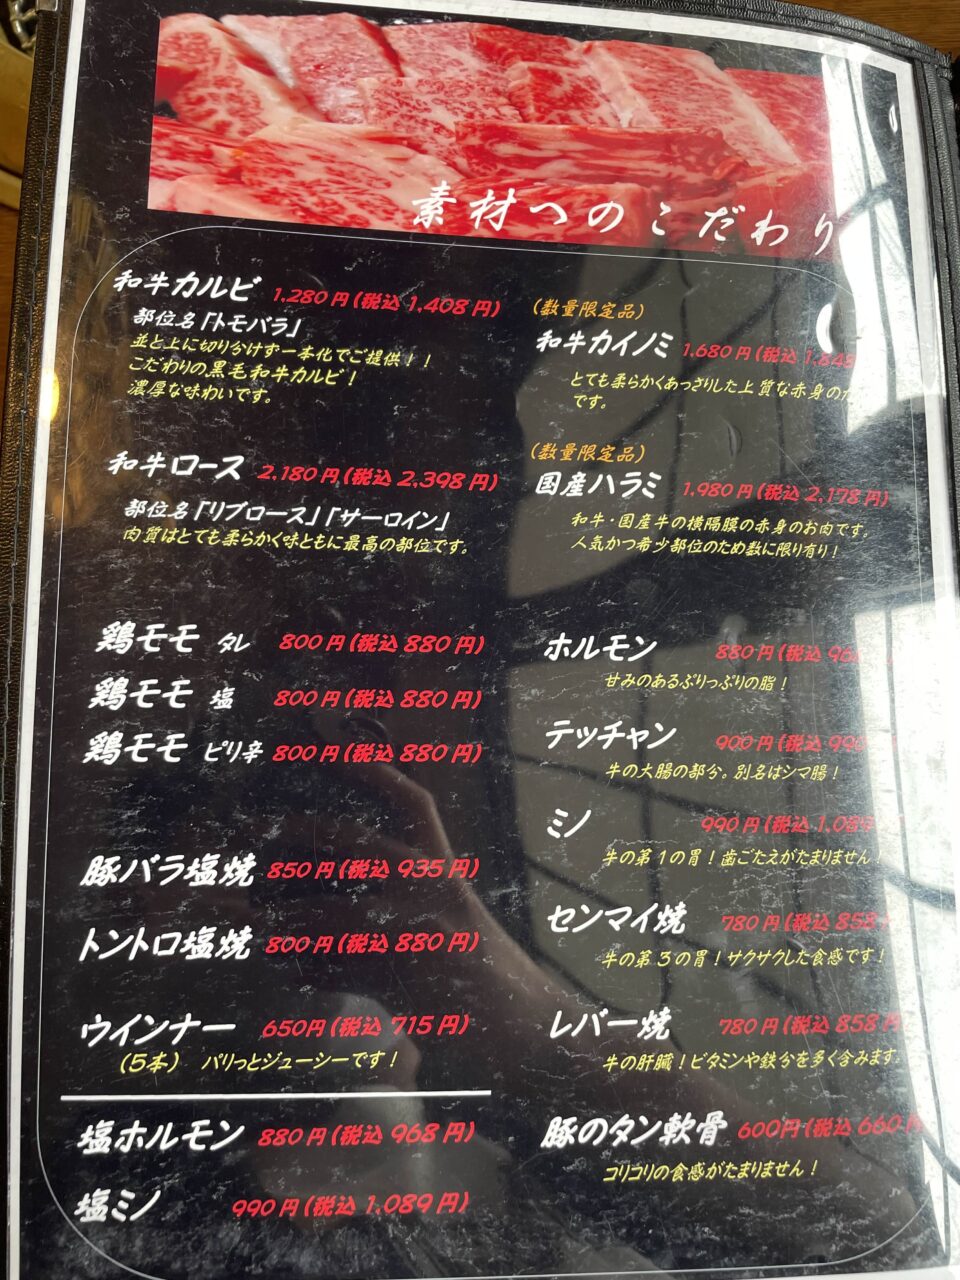 素材へのこだわり
和牛カルビ 1,280円(税込 1,408円)
部位名「トモバラ」
並と上に切り分けず一本化でご提供！！
こだわりの黒毛和牛カルビ！
濃厚な味わいです。
和牛ロース 2,180円(税込 2,398円)
部位名「リブロース」「サーロイン」
肉質はとても柔らかく味ともに最高の部位です。
鶏モモ タレ 800円(税込 880円)
鶏モモ 塩 800円(税込 880円)
鶏モモ ピリ辛 800円(税込 880円)
豚バラ塩焼 850円(税込 935円)
トントロ塩焼 800円(税込 880円)
ウインナー 650円(税込 715円)
(5本) パリっとジューシーです！
塩ホルモン 880円(税込 968円)
塩ミノ 990円(税込 1,089円)
(数量限定品)
和牛カイノミ 1,680円(税込 1,848
とても柔らかくあっさりした上質な赤身の
です。
(数量限定品)
国産ハラミ 1,980円(税込 2,178円)
和牛・国産牛の横隔膜の赤身のお肉です。
人気かつ希少部位のため数に限り有り！
ホルモン 880円(税込 96
甘みのあるぷりっぷりの脂！
テッチャン 900円(税込 990
牛の大腸の部分。別名はシマ腸！
ミノ 990円(税込 1,089
牛の第1の胃！歯ごたえがたまりません！
センマイ焼 780円(税込 858
牛の第3の胃！サクサクした食感です！
レバー焼 780円(税込 858円
牛の肝臓！ビタミンや鉄分を多く含みます。
豚のタン軟骨 600円(税込 660円
コリコリの食感がたまりません！